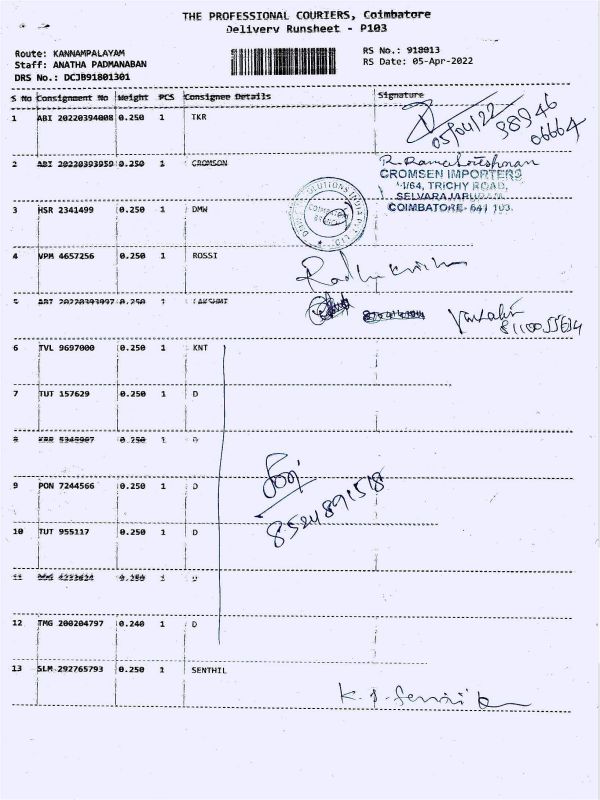 THE PROFESSIONAL COURIERS, Coimbatore
Delivery Runsheet - P103
Route: KANNAMPALAYAM
Staff: ANATHA PADMANABAN
DRS No.: DCJB91801301
RS No.: 918013
RS Date: 05-Apr-2022
S No Consignment No Weight PCS Consignee Details Signature
1 ABI 20220394008 0.250 1 TKR
05/04/22 98946
06664
2 ABI 20220393959 0.250 1 CROMSON
CROMSEN IMPORTERS
TRICHY ROAD,
SELVARAJAPURAM,
COIMBATORE- 641 103.
3 HSR 2341499 0.250 1 DMW
SOLUTIONS INDIA PVT. LTD.
COIMBATORE
BRANCH
4 VPM 4657256 0.250 1 ROSSI
5 ABI 20220393997 0.250 1 LAKSHMI
6 TVL 9697000 0.250 1 KNT
7 TUT 157629 0.250 1 D
8 KRR 5345907 0.250 1 D
9 PON 7244566 0.250 1 D
8524891518
10 TUT 955117 0.250 1 D
11 0.250 1 D
12 TMG 200204797 0.240 1 D
13 SLM 292765793 0.250 1 SENTHIL